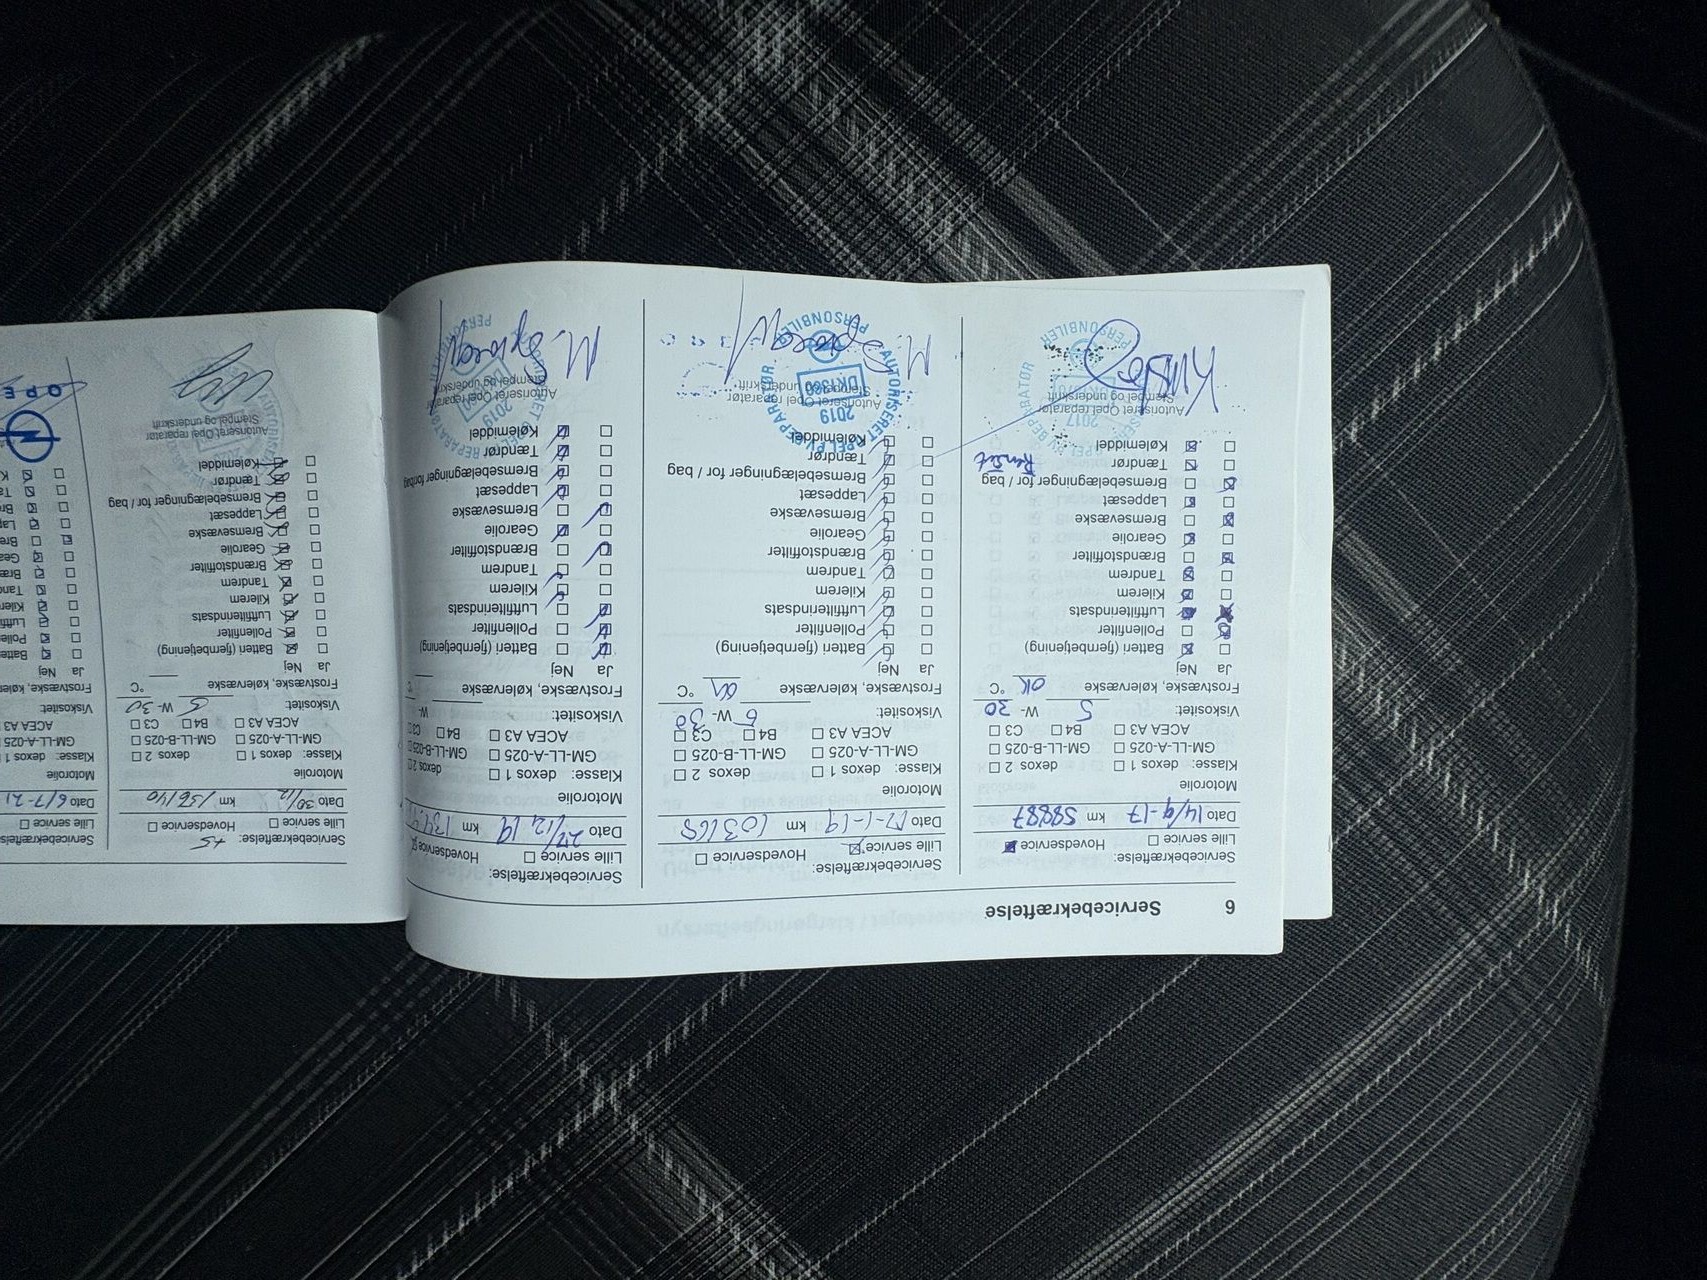 6 Servicebekræftelse
Servicebekræftelse:
Lille service Hovedservice
Dato 14/9-17 km 58887
Motorolie
Klasse: dexos 1 dexos 2
GM-LL-A-025 GM-LL-B-025
ACEA A3 B4 C3
Viskositet: 5 W- 30
Frostvæske, kølervæske OK °C
Ja Nej
Batteri (fjernbetjening)
Pollenfilter
Luftfilterindsats
Kilerem
Tandrem
Brændstoffilter
Gearolie
Bremsevæske
Lappesæt
Bremsebelægninger for / bag
Tændrør Renset
Kølemiddel
Autoriseret Opel reparatør
Stempel og underskrift
2017
PERSONBILER
Servicebekræftelse:
Lille service Hovedservice
Dato 17-1-19 km 103168
Motorolie
Klasse: dexos 1 dexos 2
GM-LL-A-025 GM-LL-B-025
ACEA A3 B4 C3
Viskositet: W- 30
Frostvæske, kølervæske °C
Ja Nej
Batteri (fjernbetjening)
Pollenfilter
Luftfilterindsats
Kilerem
Tandrem
Brændstoffilter
Gearolie
Bremsevæske
Lappesæt
Bremsebelægninger for / bag
Tændrør
Kølemiddel
Autoriseret Opel reparatør
Stempel og underskrift
AUTORISERET OPEL PV REPARATØR
2019
PERSONBILER
Servicebekræftelse:
Lille service Hovedservice
Dato 27/12 19 km
Motorolie
Klasse: dexos 1 dexos 2
GM-LL-A-025 GM-LL-B-025
ACEA A3 B4 C3
Viskositet: W-
Frostvæske, kølervæske
Ja Nej
Batteri (fjernbetjening)
Pollenfilter
Luftfilterindsats
Kilerem
Tandrem
Brændstoffilter
Gearolie
Bremsevæske
Lappesæt
Bremsebelægninger for bag
Tændrør
Kølemiddel
Autoriseret Opel reparatør
Stempel og underskrift
2019
Servicebekræftelse: +5
Lille service Hovedservice
Dato 30/12 km 156140
Motorolie
Klasse: dexos 1 dexos 2
GM-LL-A-025 GM-LL-B-025
ACEA A3 B4 C3
Viskositet: 5 W- 30
Frostvæske, kølervæske °C
Ja Nej
Batteri (fjernbetjening)
Pollenfilter
Luftfilterindsats
Kilerem
Tandrem
Brændstoffilter
Gearolie
Bremsevæske
Lappesæt
Bremsebelægninger for / bag
Tændrør
Kølemiddel
Autoriseret Opel reparatør
Stempel og underskrift
Lille service
Dato 6/7-21
Motorolie
Klasse:
GM-LL-A-025
ACEA A3
Viskositet:
Ja Nej
OPE